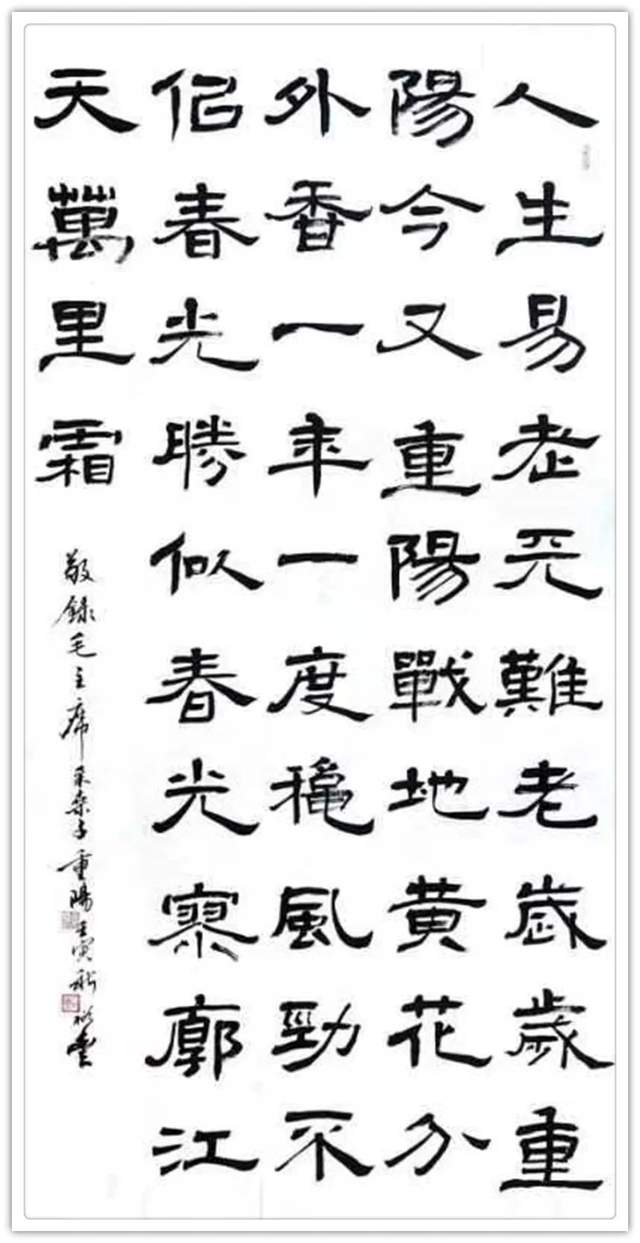 人生易老兲難老歲歲重
陽今又重陽戰地黃花分
外香一年一度穐風勁不
佀春光勝似春光寥廓江
天萬里霜
敬錄毛主席采桑子重陽壬寅秋